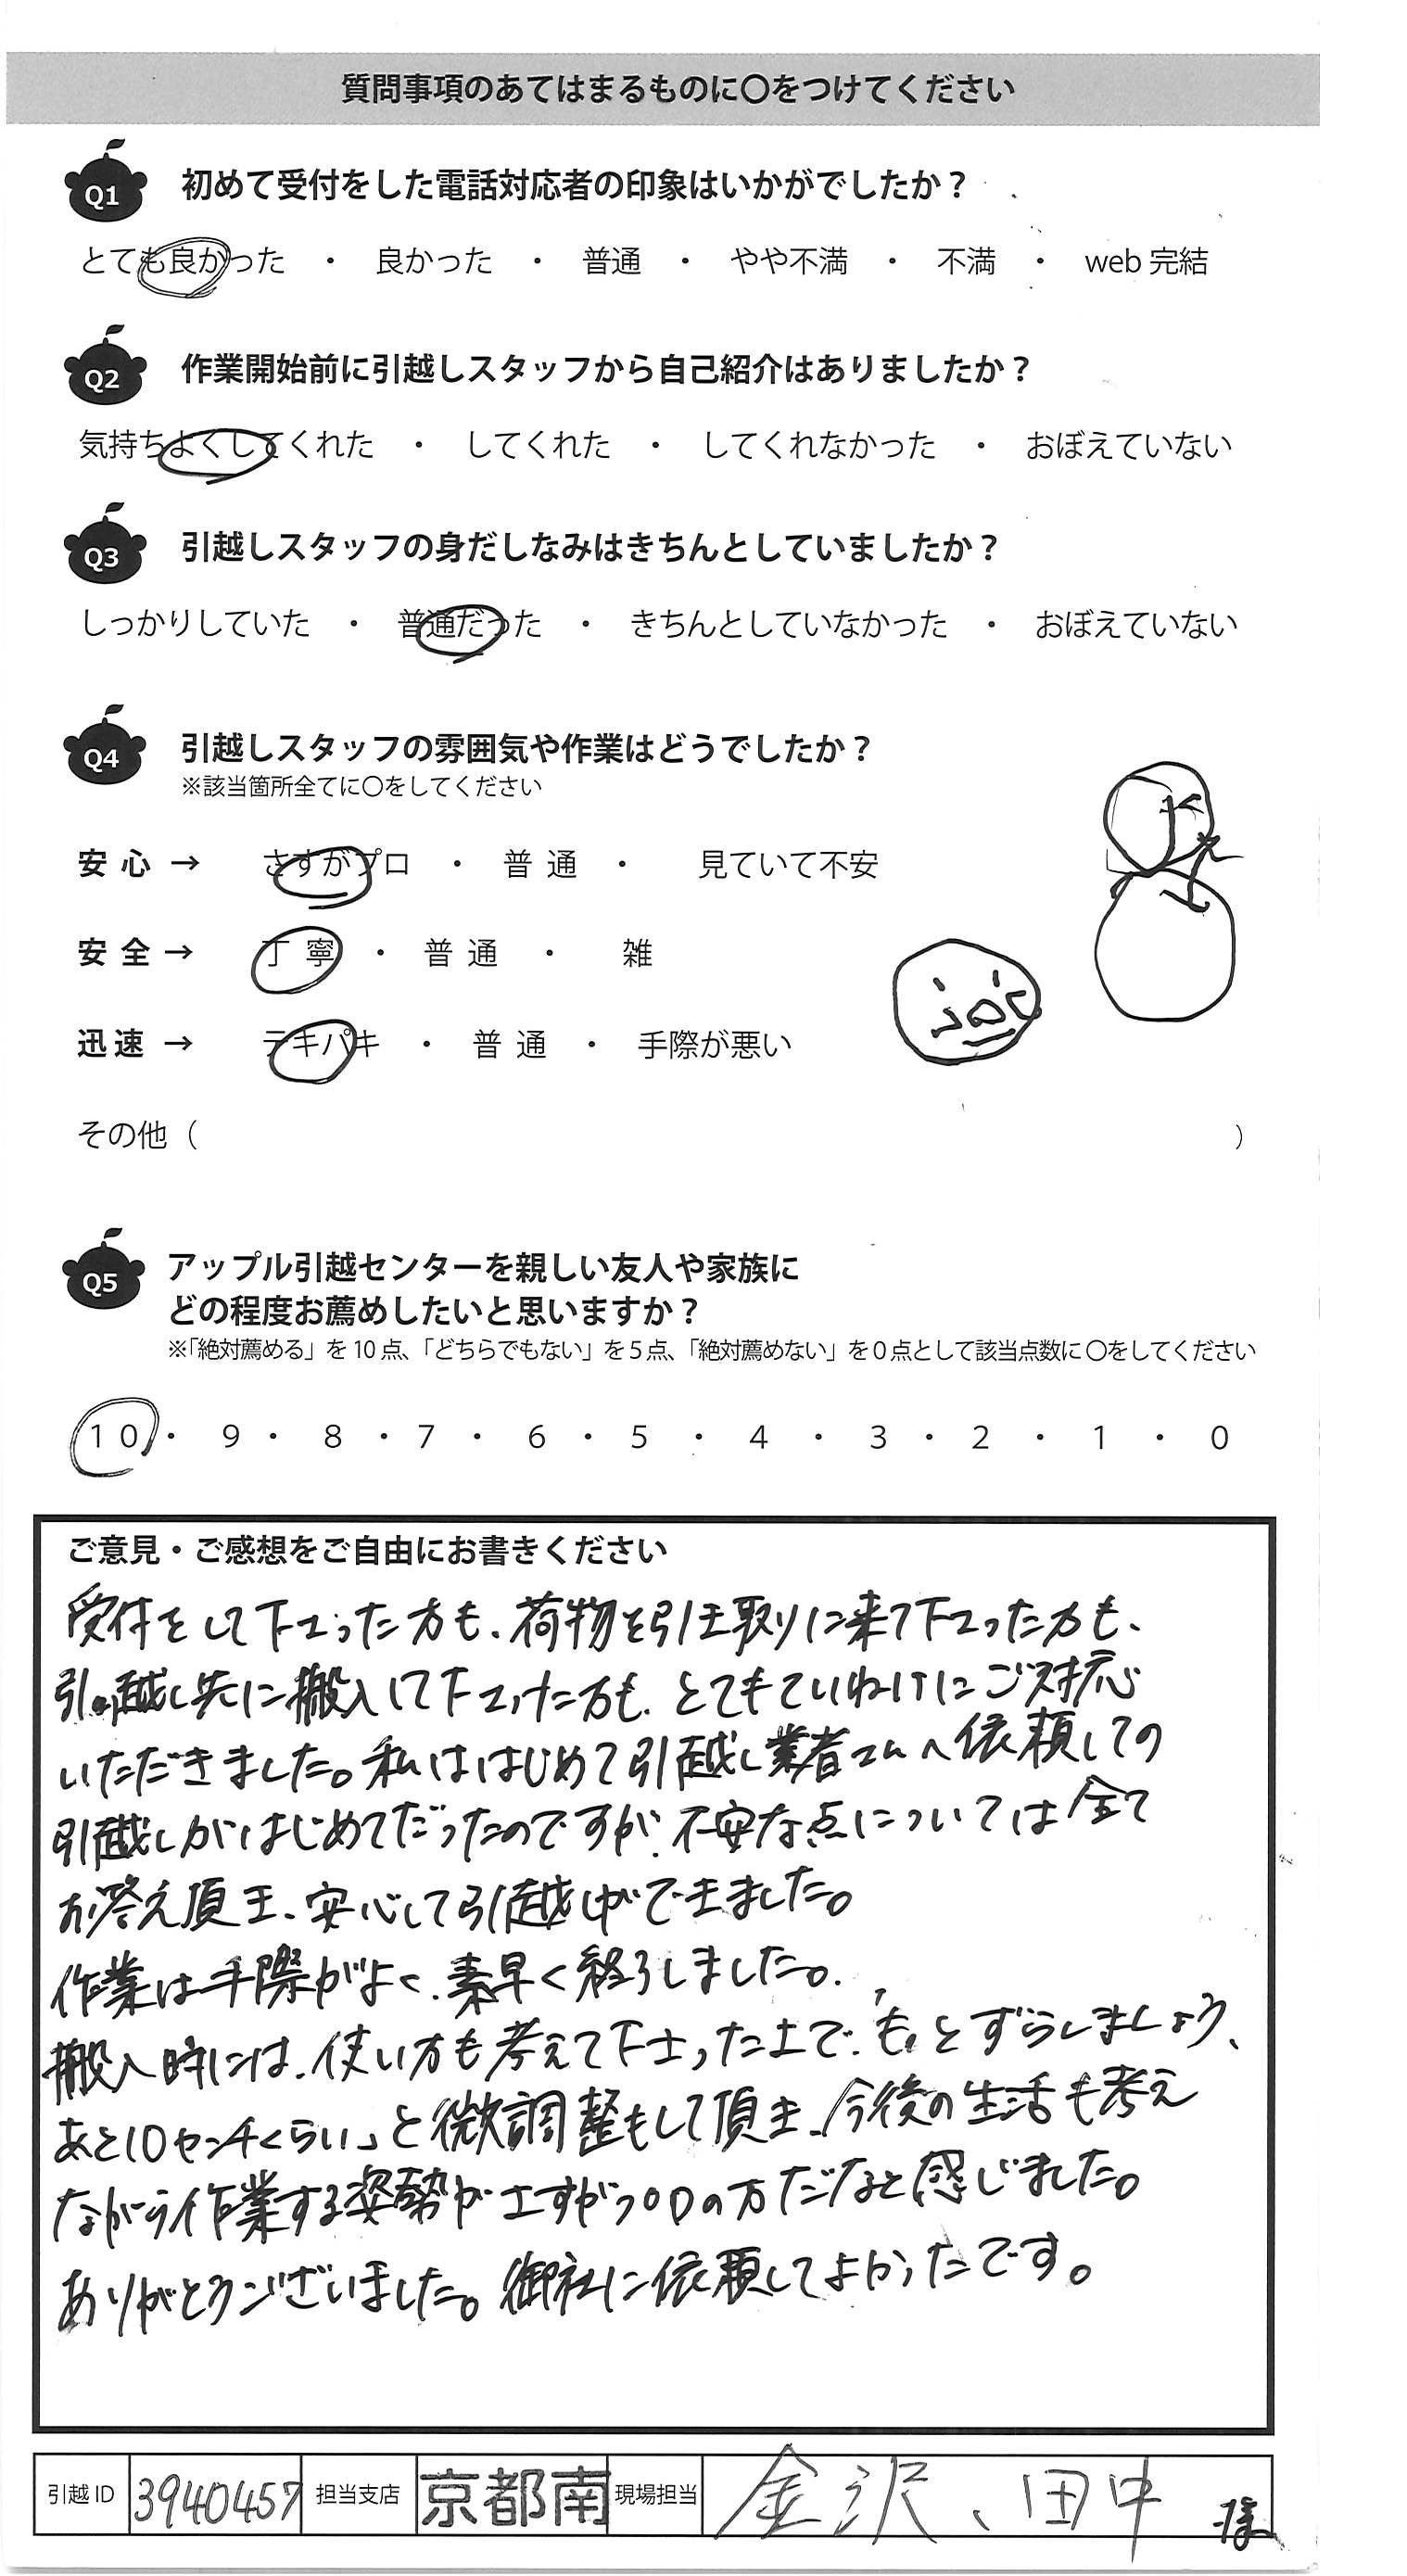 質問事項のあてはまるものに〇をつけてください
Q1 初めて受付をした電話対応者の印象はいかがでしたか？
とても良かった ・ 良かった ・ 普通 ・ やや不満 ・ 不満 ・ web 完結
Q2 作業開始前に引越しスタッフから自己紹介はありましたか？
気持ちよくしてくれた ・ してくれた ・ してくれなかった ・ おぼえていない
Q3 引越しスタッフの身だしなみはきちんとしていましたか？
しっかりしていた ・ 普通だった ・ きちんとしていなかった ・ おぼえていない
Q4 引越しスタッフの雰囲気や作業はどうでしたか？
※該当箇所全てに〇をしてください
安心 → さすがプロ ・ 普通 ・ 見ていて不安
安全 → 丁寧 ・ 普通 ・ 雑
迅速 → テキパキ ・ 普通 ・ 手際が悪い
その他（ ）
Q5 アップル引越センターを親しい友人や家族に
どの程度お薦めしたいと思いますか？
※「絶対薦める」を10点、「どちらでもない」を5点、「絶対薦めない」を0点として該当点数に〇をしてください
10 ・ 9 ・ 8 ・ 7 ・ 6 ・ 5 ・ 4 ・ 3 ・ 2 ・ 1 ・ 0
ご意見・ご感想をご自由にお書きください
受付をして下さった方も、荷物を引き取りに来て下さった方も、
引っ越し先に搬入して下さった方も、とてもていねいにご対応
いただきました。私ははじめて引越し業者さんへ依頼しての
引越しがはじめてだったのですが、不安な点については全て
お答え頂き、安心して引越しができました。
作業は手際がよく、素早く終了しました。
搬入時には、使い方も考えて下さった上で、「もっとずらしましょう、
あと10センチくらい」と微調整もして頂き、今後の生活も考え
ながら作業する姿勢がさすがプロの方だなと感じました。
ありがとうございました。御社に依頼してよかったです。
引越 ID 3940457 担当支店 京都南 現場担当 金沢、田中 様